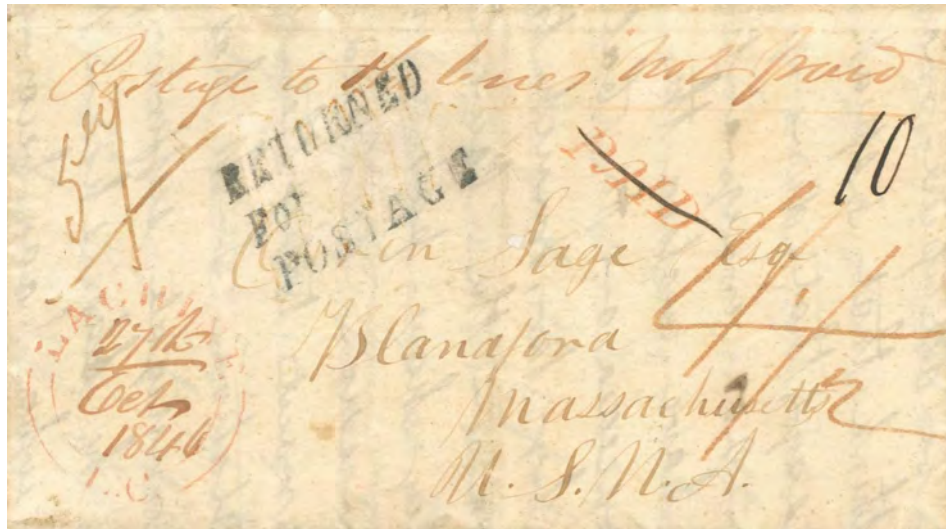 Postage to the lines not paid
RETURNED
FOR
POSTAGE
PAID
10
Sage Esqr
Blandford
Massachusetts
U. S. N. A.
LACHUTE
27th
Oct
1846
L.C.